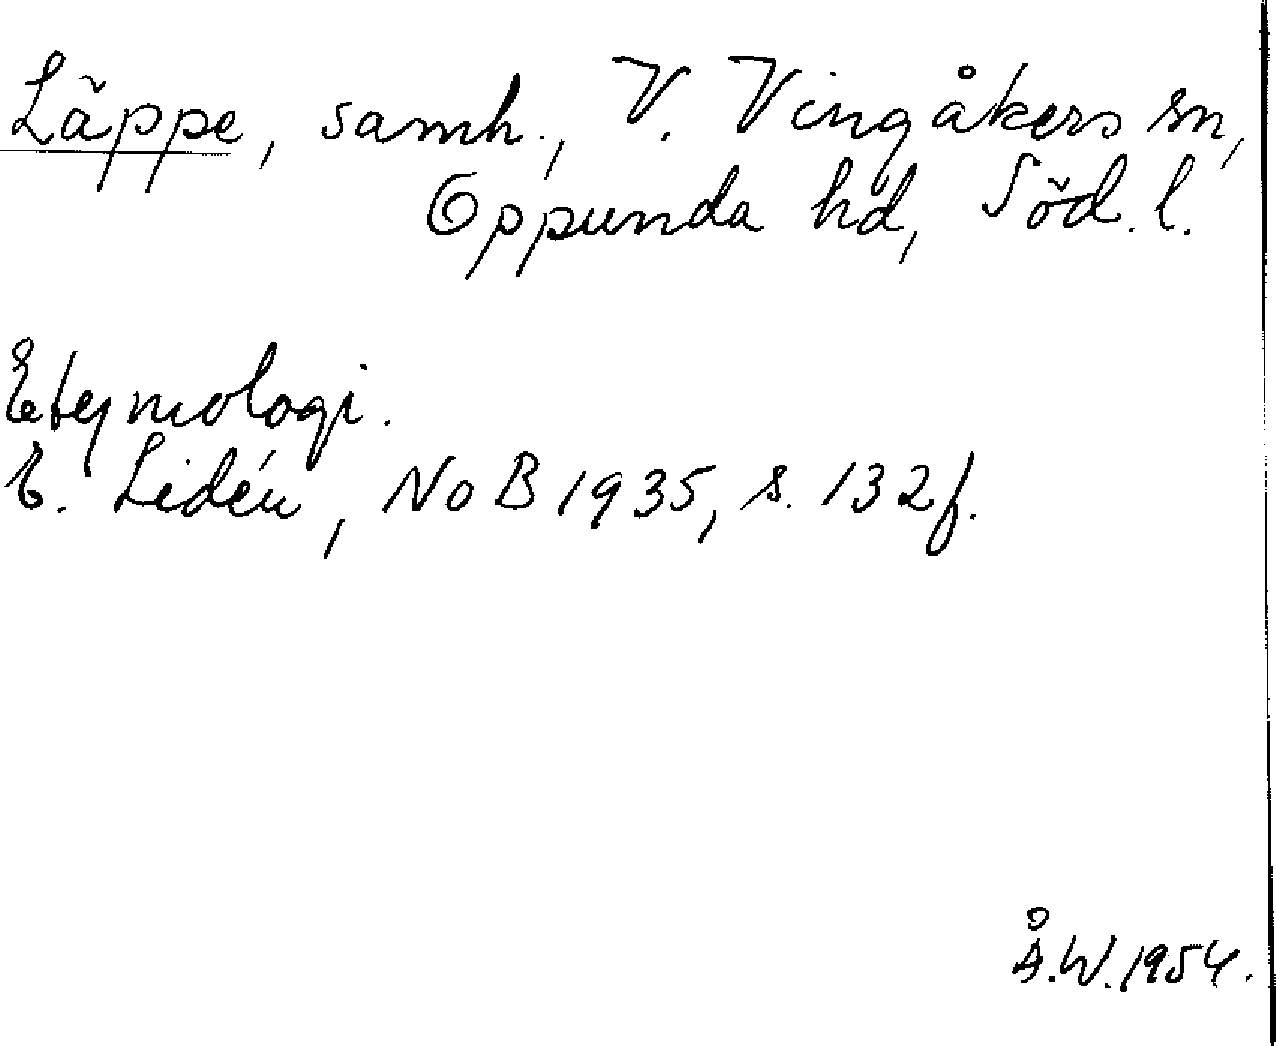 Läppe, samh., V. Vingåkers sn,
Oppunda hd, Söd. l.
Etymologi.
E. Lidén, NoB 1935, s. 132 f.
Å.W. 1954.